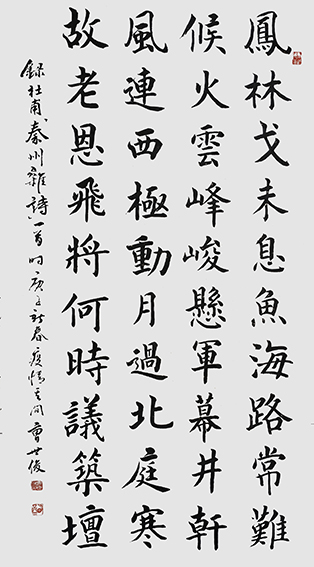 鳳林戈未息魚海路常難
候火雲峰峻懸軍幕井軒
風連西極動月過北庭寒
故老恩飛將何時議築壇
錄杜甫秦州雜詩一首时庚子新春疫情之间曾世俊